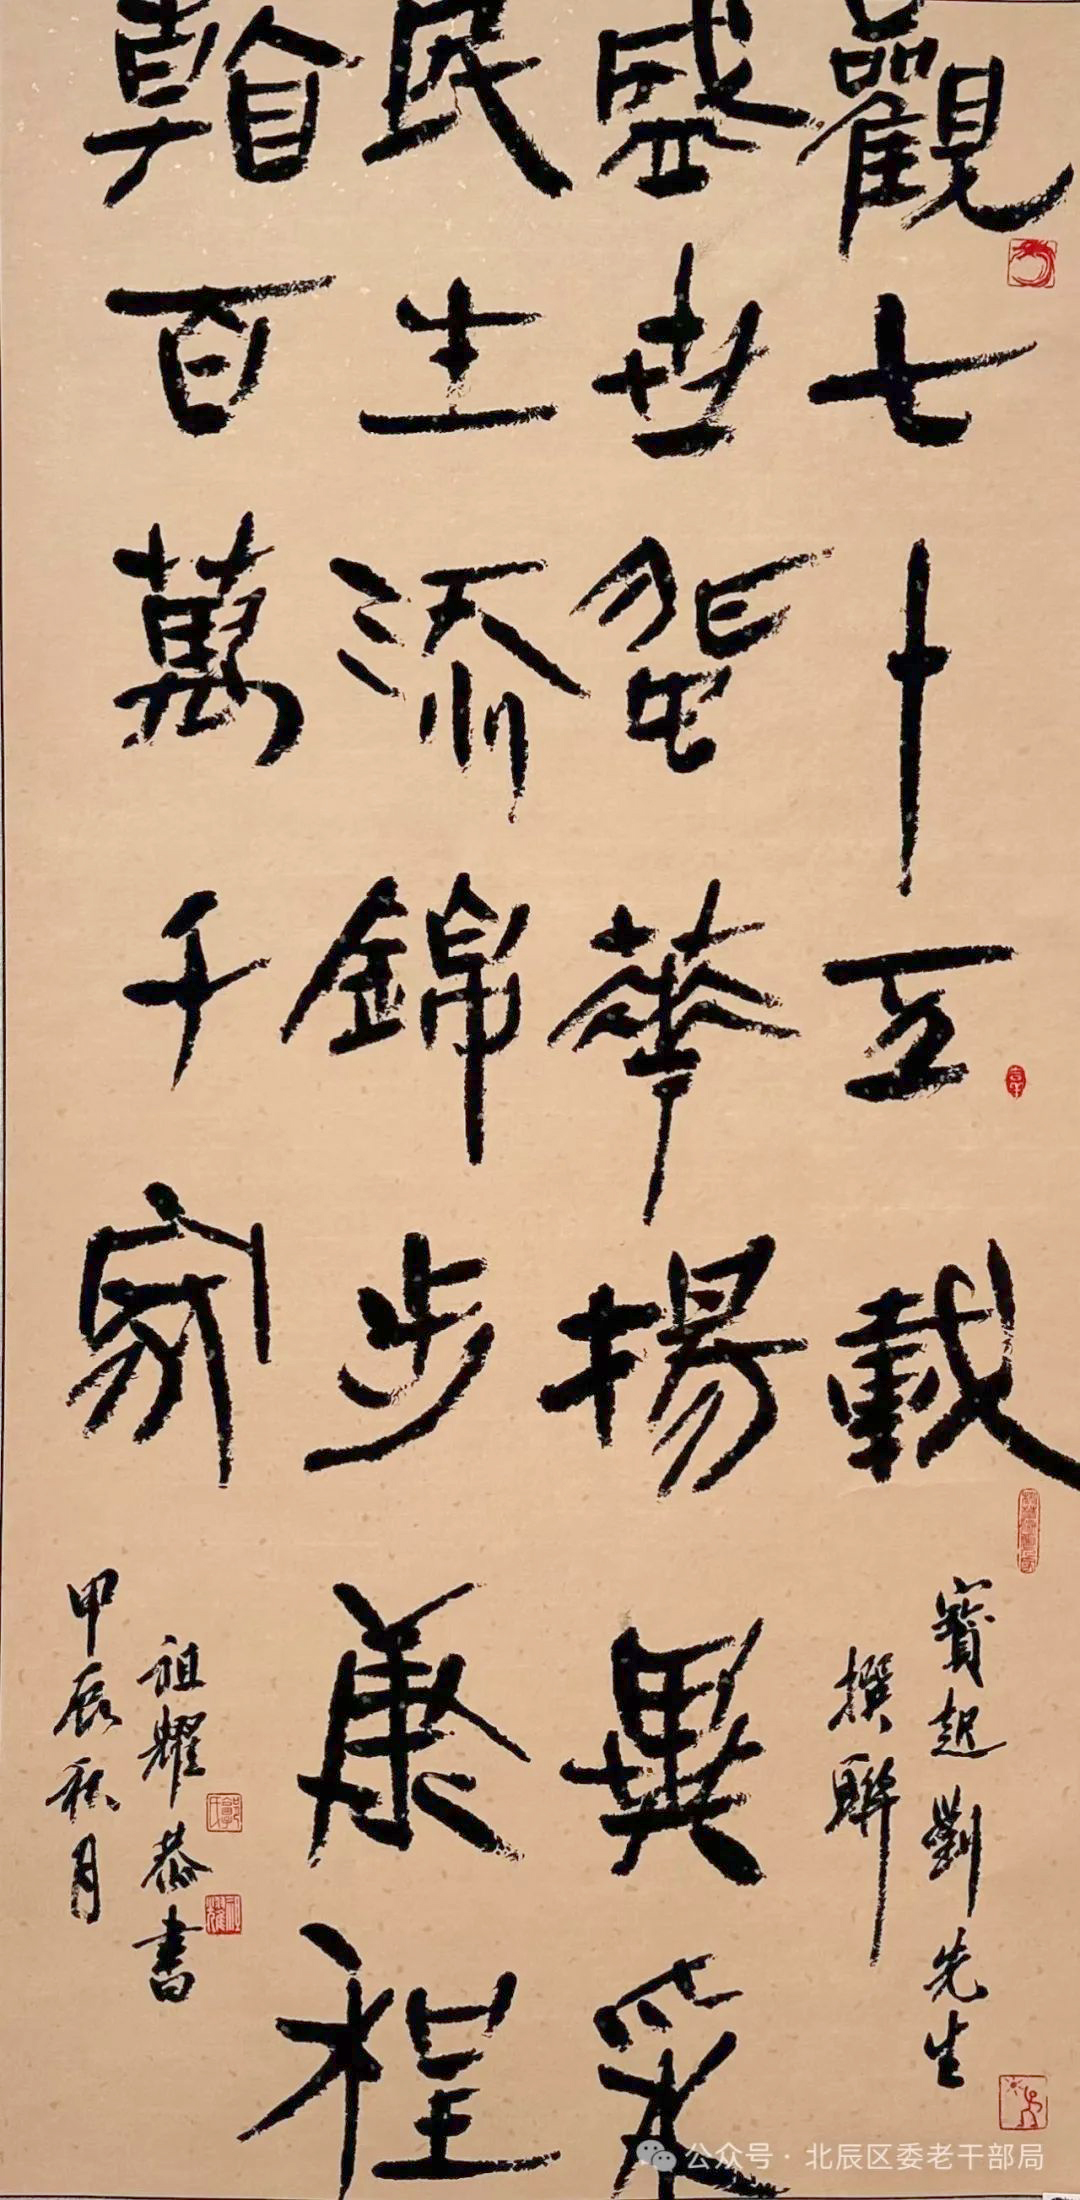 觀七十五載
寶起劉先生
撰聯
盛世華揚異采
民生添錦步康程
百萬千家
祖耀恭書
甲辰秋月
公众号·北辰区委老干部局